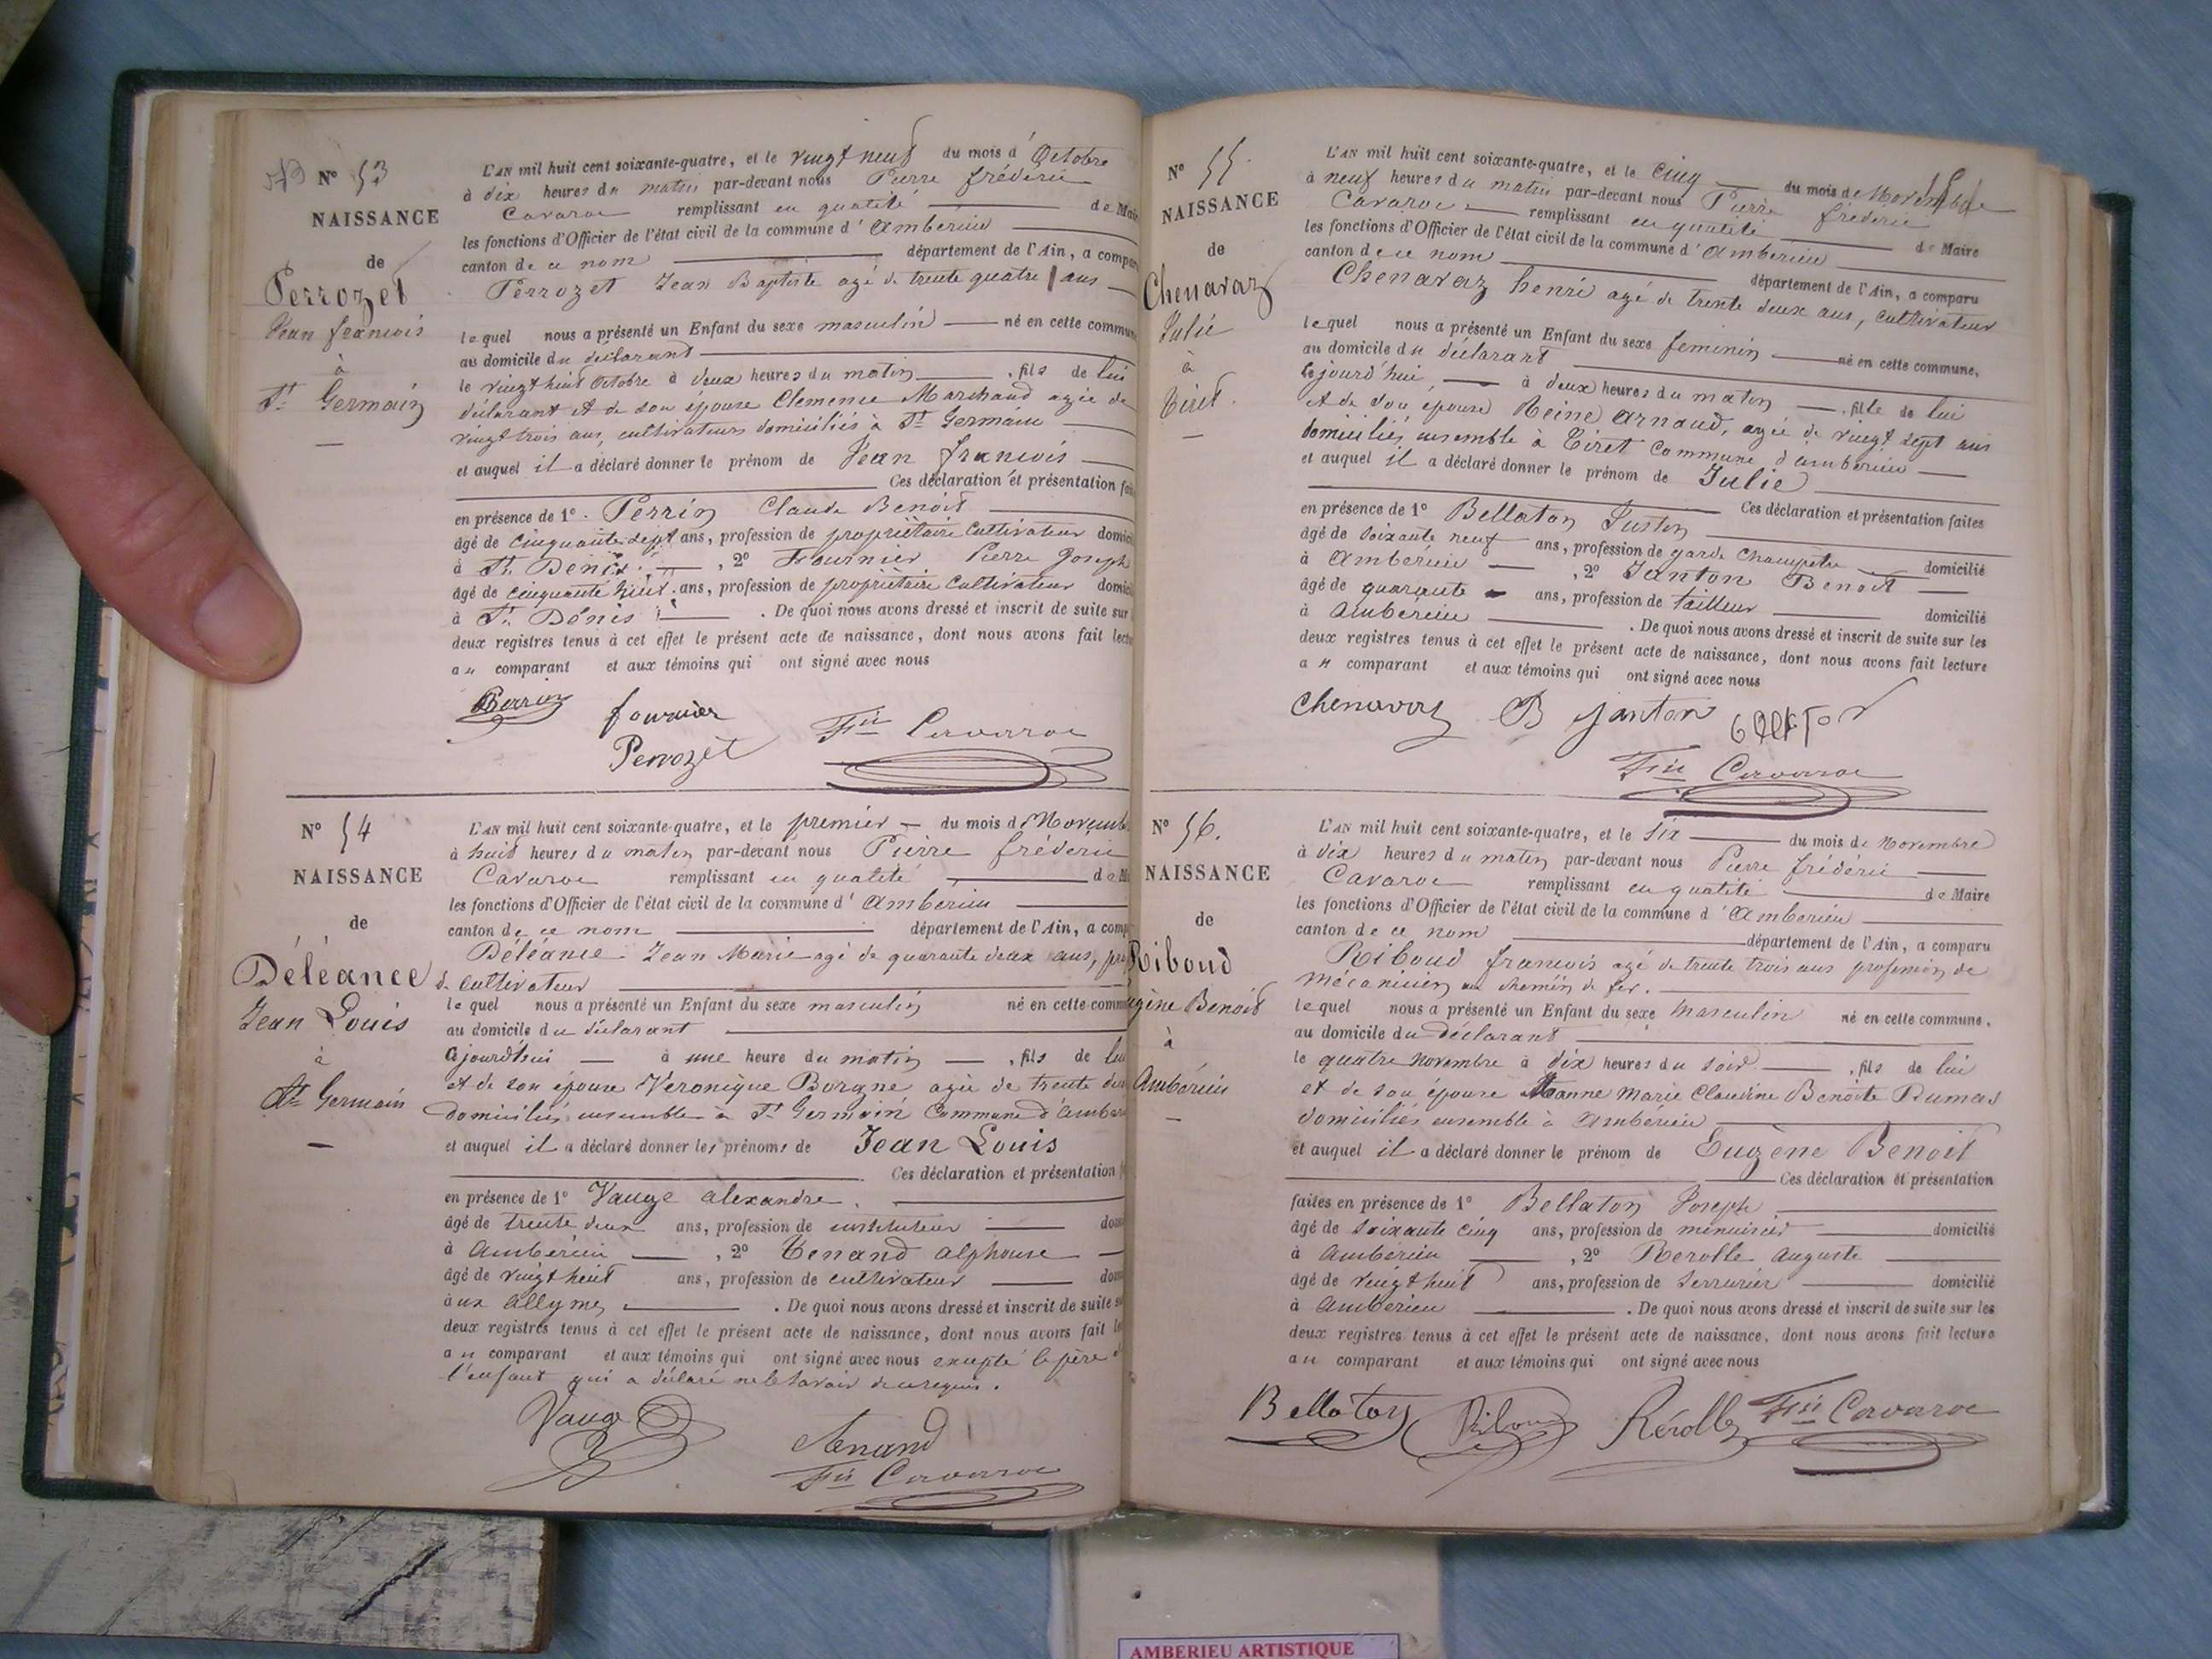 N° 53
NAISSANCE
de
Perrozet
Jean francois
à
St Germain
L'AN mil huit cent soixante-quatre, et le vingt neuf du mois d'Octobre
à dix heures du matin par-devant nous Pierre fréderic
Cavaroc remplissant en qualité de Mair
les fonctions d'Officier de l'état civil de la commune d'Ambérieu
canton de ce nom département de l'Ain, a compar
Perrozet Jean Baptiste agé de trente quatre ans
lequel nous a présenté un Enfant du sexe masculin né en cette commun
au domicile du déclarant
le vingt huit Octobre à deux heures du matin, fils de lui
déclarant et de son épouse Clemence Marchand agée de
vingt trois ans, cultivateurs domiciliés à St Germain
et auquel il a déclaré donner le prénom de Jean francois
Ces déclaration et présentation fait
en présence de 1° Perrin Claude Benoit
âgé de cinquante sept ans, profession de propriètaire cultivateur domici
à St Denis, 2° Fournier Pierre Joseph
âgé de cinquante huit ans, profession de propriètaire cultivateur domici
à St Dénis. De quoi nous avons dressé et inscrit de suite sur
deux registres tenus à cet effet le présent acte de naissance, dont nous avons fait lectu
au comparant et aux témoins qui ont signé avec nous
Perrin
fournier
Perrozet
Fric Cavaroc
N° 54
NAISSANCE
de
Déléance
Jean Louis
à
St Germain
L'AN mil huit cent soixante-quatre, et le premier du mois de Novemb
à huit heures du matin par-devant nous Pierre fréderic
Cavaroc remplissant en qualité de M
les fonctions d'Officier de l'état civil de la commune d'Ambérieu
canton de ce nom département de l'Ain, a comp
Déléance Jean Marie agé de quarante deux ans, pro
de cultivateur
lequel nous a présenté un Enfant du sexe masculin né en cette comm
au domicile du déclarant
Cejourd'hui à une heure du matin, fils de lui
et de son épouse Veronique Borgne agée de trente deu
domiciliés ensemble à St Germain Commune d'Ambér
et auquel il a déclaré donner les prénoms de Jean Louis
Ces déclaration et présentation f
en présence de 1° Vauge alexandre
âgé de trente deux ans, profession de instituteur dom
à Ambérieu, 2° Tenand alphonse
âgé de vingt huit ans, profession de cultivateur dom
aux allymes. De quoi nous avons dressé et inscrit de suite s
deux registres tenus à cet effet le présent acte de naissance, dont nous avons fait le
au comparant et aux témoins qui ont signé avec nous excepté le père d
l'enfant qui a déclaré ne le savoir de ce requis.
Vauge
Tenand
Fric Cavaroc
N° 55.
NAISSANCE
de
Chenavaz
Julie
à
Tiret.
L'AN mil huit cent soixante-quatre, et le cinq du mois de Novembre
à neuf heures du matin par-devant nous Pierre fréderic
Cavaroc remplissant en qualité de Maire
les fonctions d'Officier de l'état civil de la commune d'Ambérieu
canton de ce nom département de l'Ain, a comparu
Chenavaz henri agé de trente deux ans, cultivateur
lequel nous a présenté un Enfant du sexe feminin né en cette commune,
au domicile du déclarant
Cejourd'hui, à deux heures du matin, fille de lui
et de son épouse Reine Arnaud, agée de vingt sept ans
domiciliés ensemble à Tiret Commune d'ambérieu
et auquel il a déclaré donner le prénom de Julie
Ces déclaration et présentation faites
en présence de 1° Bellaton Justin
âgé de soixante neuf ans, profession de garde champetre domicilié
à Ambérieu, 2° Janton Benoit
âgé de quarante ans, profession de tailleur domicilié
à Ambérieu. De quoi nous avons dressé et inscrit de suite sur les
deux registres tenus à cet effet le présent acte de naissance, dont nous avons fait lecture
au comparant et aux témoins qui ont signé avec nous
Chenavaz B janton
Fric Cavaroc
N° 56.
NAISSANCE
de
Riboud
gène Benoit
à
Ambérieu
L'AN mil huit cent soixante-quatre, et le six du mois de Novembre
à dix heures du matin par-devant nous Pierre fréderic
Cavaroc remplissant en qualité de Maire
les fonctions d'Officier de l'état civil de la commune d'Ambérieu
canton de ce nom département de l'Ain, a comparu
Riboud francois agé de trente trois ans profession de
mécanicien au chemin de fer.
lequel nous a présenté un Enfant du sexe masculin né en cette commune,
au domicile du déclarant
le quatre novembre à dix heures du soir, fils de lui
et de son épouse Jeanne Marie Claudine Benoite Dumas
domiciliés ensemble à Ambérieu
et auquel il a déclaré donner le prénom de Eugène Benoit
Ces déclaration et présentation
faites en présence de 1° Bellaton Joseph
âgé de soixante cinq ans, profession de menuisier domicilié
à Ambérieu, 2° Rerolle auguste
âgé de vingt huit ans, profession de serrurier domicilié
à Ambérieu. De quoi nous avons dressé et inscrit de suite sur les
deux registres tenus à cet effet le présent acte de naissance, dont nous avons fait lecture
au comparant et aux témoins qui ont signé avec nous
Bellaton Riboud Rérolle Fric Cavaroc
AMBERIEU ARTISTIQUE